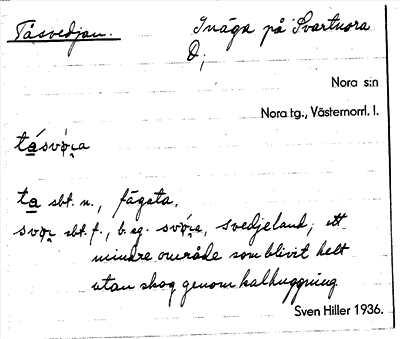 Tåsvedjan.
Inäga på Svartnora
D;
Nora s:n
Nora tg., Västernorrl. l.
ta sbt. n., fägata,
sbt. f., b. sg. svedjeland; ett
mindre område som blivit helt
utan skog genom kalhuggning
Sven Hiller 1936.